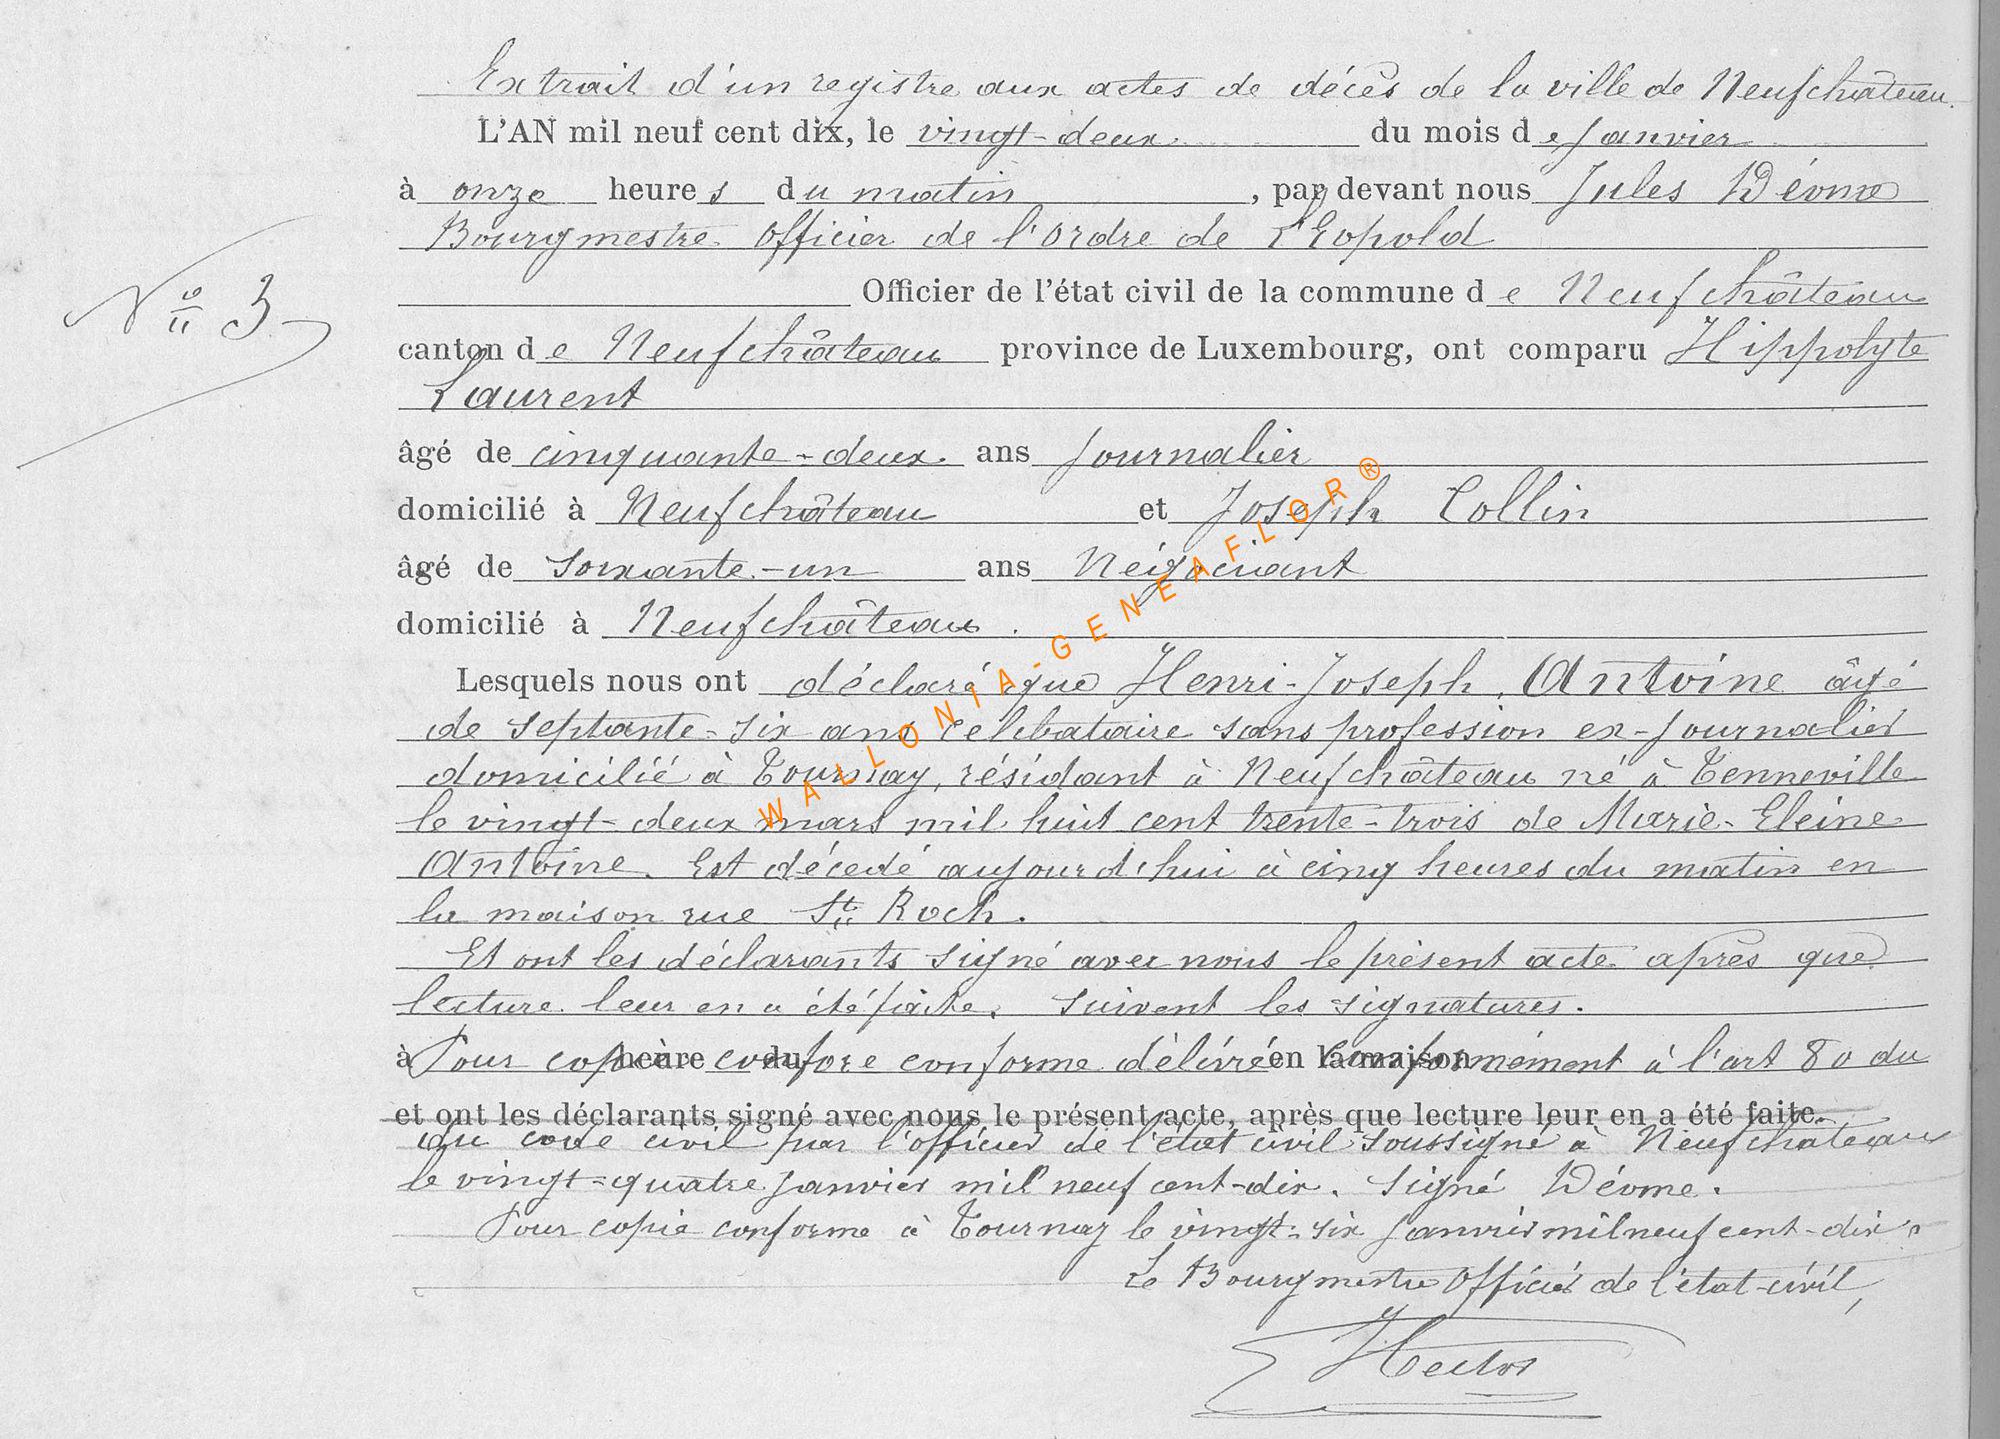 Extrait d'un registre aux actes de décès de la ville de Neufchâteau.
L'AN mil neuf cent dix, le vingt-deux du mois de Janvier
à onze heures du matin, par devant nous Jules
Bourgmestre Officier de l'Ordre de Léopold
Officier de l'état civil de la commune de Neufchâteau
N° 3
canton de Neufchâteau province de Luxembourg, ont comparu Hippolyte
Laurent
âgé de cinquante-deux ans journalier
domicilié à Neufchâteau et Joseph Collin
âgé de soixante-un ans Négociant
domicilié à Neufchâteau.
Lesquels nous ont déclaré que Henri-Joseph Antoine âgé
de septante-six ans célibataire sans profession ex-journalier
domicilié à Tournay, résidant à Neufchâteau né à Tenneville
le vingt-deux mars mil huit cent trente-trois de Marie-Eleine
Antoine. Est décédé aujourd'hui à cinq heures du matin en
la maison rue St Roch.
Et ont les déclarants signé avec nous le présent acte après que
lecture leur en a été faite. Suivent les signatures.
à heure du en la maison
Pour copie conforme délivrée conformément à l'art 80 du
et ont les déclarants signé avec nous le présent acte, après que lecture leur en a été faite.
du code civil par l'officier de l'état civil soussigné à Neufchâteau
le vingt-quatre janvier mil neuf cent-dix. Signé
Pour copie conforme à Tournay le vingt-six Janvier mil neuf cent-dix.
Le Bourgmestre Officier de l'état-civil,
WALLONIA-GENEAFLOR®